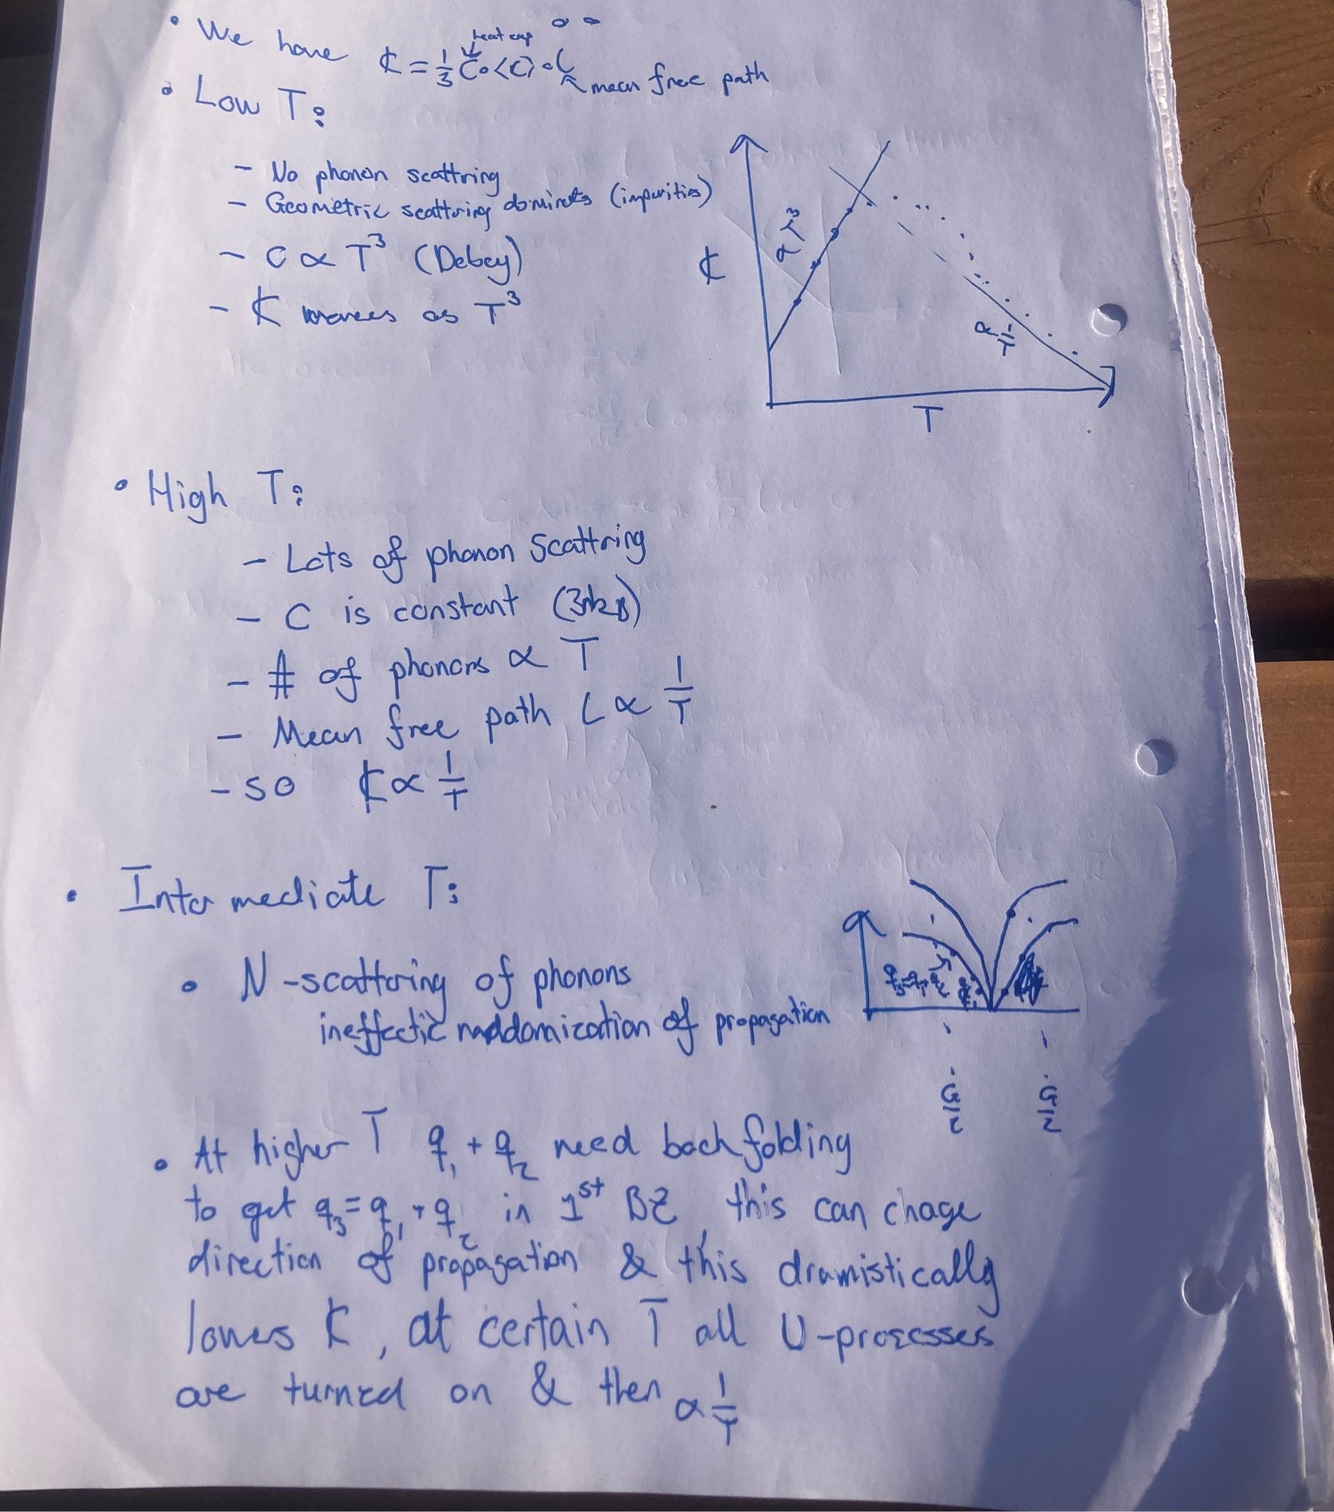 • We have K = 1/3 C∘<C>∘L
heat cap
mean free path
• Low T:
- No phonon scattring
- Geometric scattring dominets (impurities)
- C ∝ T³ (Debey)
- K as T³
K
∝ T³
∝ 1/T
T
• High T:
- Lots of phonon Scattring
- C is constant (3nkB)
- # of phonons ∝ T
- Mean free path L ∝ 1/T
- so K ∝ 1/T
• Intermediate T:
• N-scattoring of phonons
ineffectic raddomization of propagation
q₃=q₁+q₂
q₁
G/2
G/2
• At higher T q₁ + q₂ need bachfolding
to get q₃ = q₁ + q₂ in 1st BZ, this can chage
direction of propagation & this dramistically
lowes K, at certain T all U-prosesses
are turned on & then ∝ 1/T